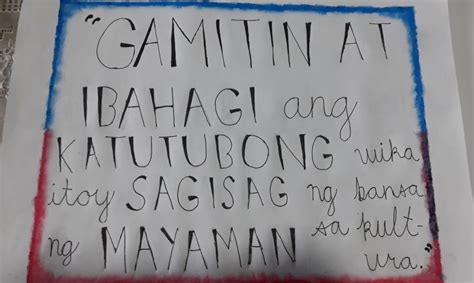 "GAMITIN AT
IBAHAGI ang
KATUTUBONG wika
itoy SAGISAG ng bansa
ng MAYAMAN sa kult-
ura."